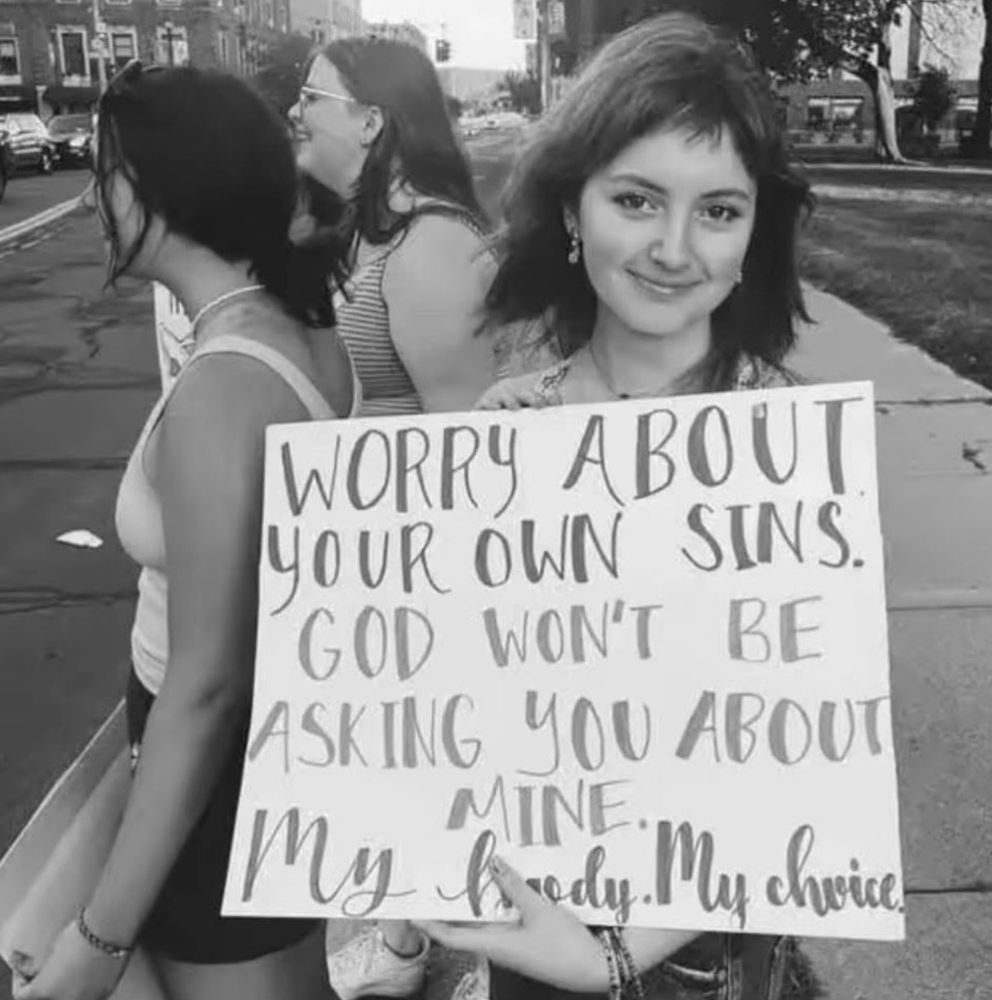 WORRY ABOUT
YOUR OWN SINS.
GOD WON'T BE
ASKING YOU ABOUT
MINE.
My body. My choice.